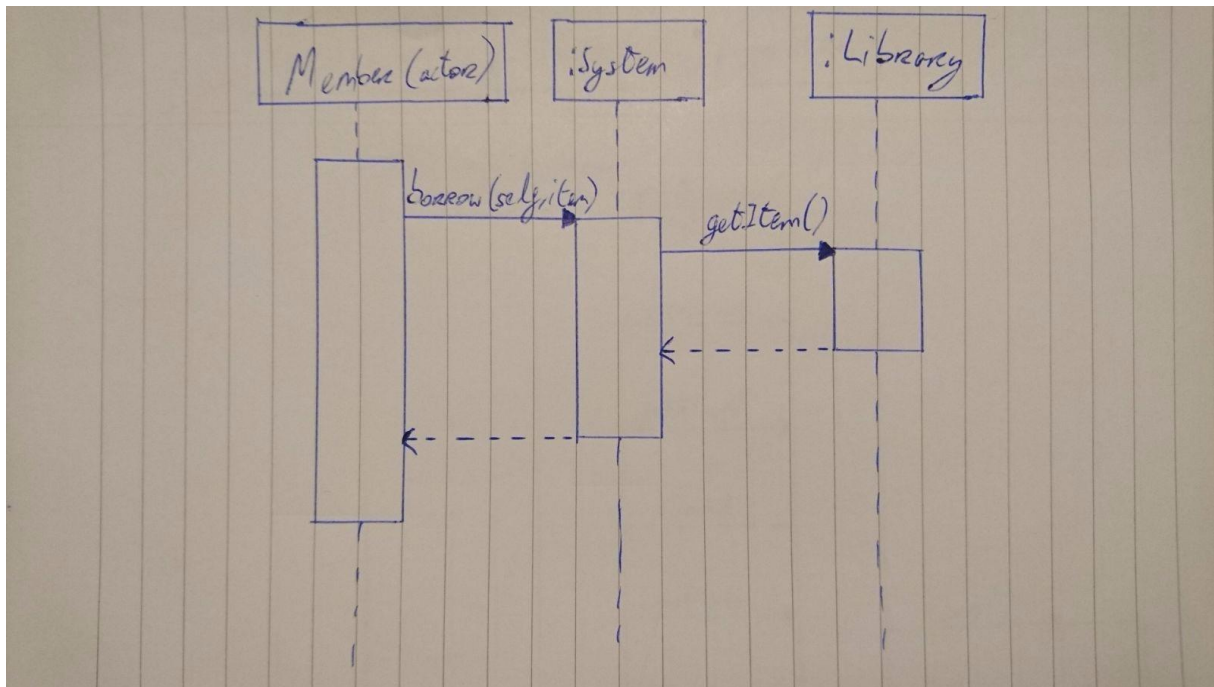 Member (actor)
:System
:Library
borrow(self,item)
getItem()